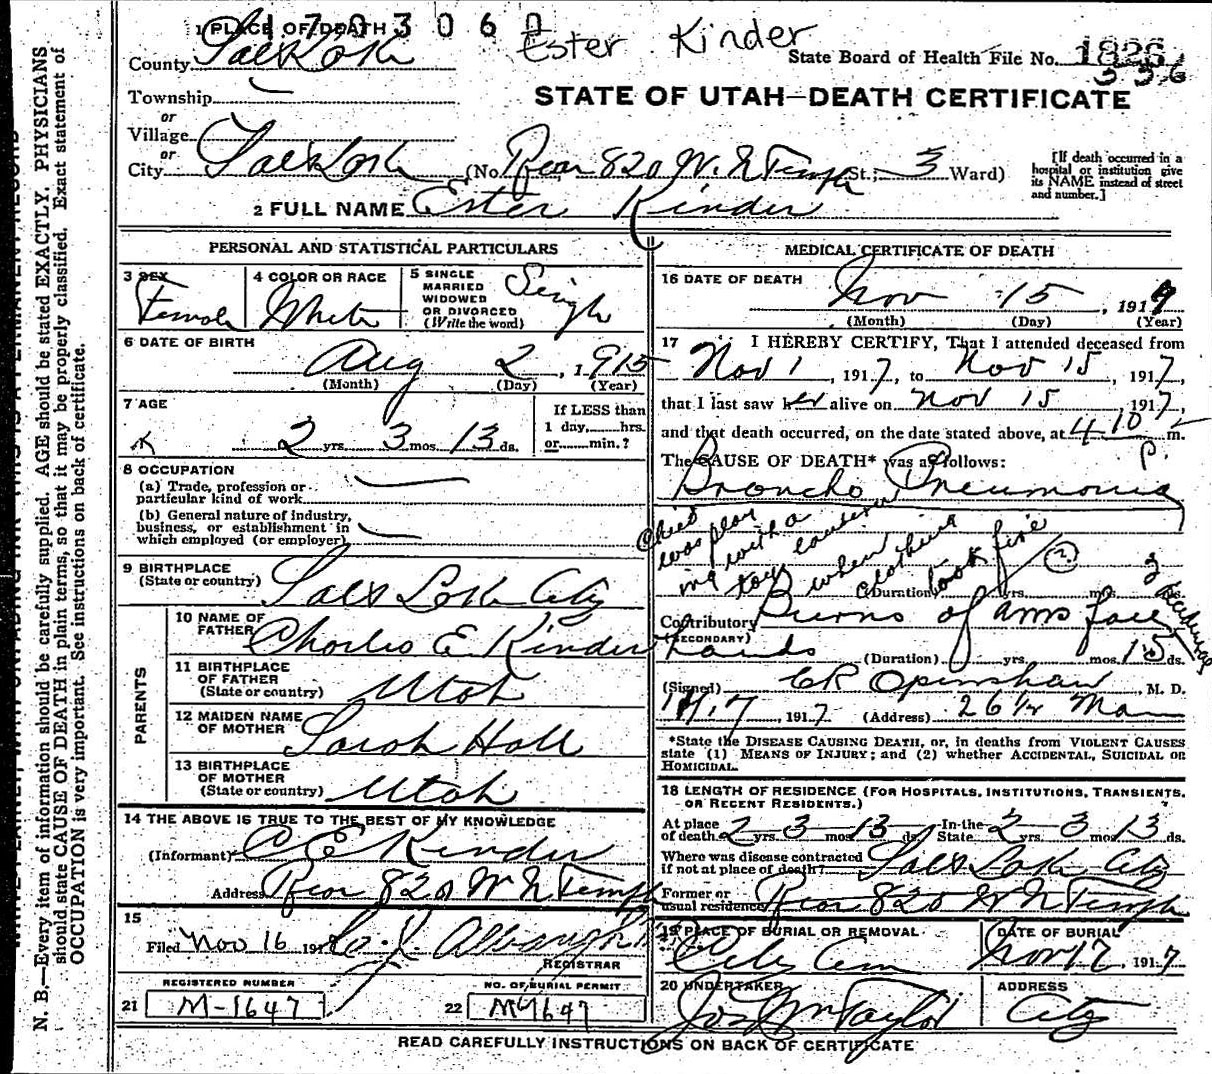 1703060
1 PLACE OF DEATH
Ester Kinder
State Board of Health File No. 1826
336
County Salt Lake
STATE OF UTAH—DEATH CERTIFICATE
Township
or
Village
or
City Salt Lake (No. Rear 820 W. N Temple St.; 3 Ward)
[If death occurred in a hospital or institution give its NAME instead of street and number.]
2 FULL NAME Ester Kinder
PERSONAL AND STATISTICAL PARTICULARS
3 SEX Female
4 COLOR OR RACE White
5 SINGLE MARRIED WIDOWED OR DIVORCED (Write the word) Single
6 DATE OF BIRTH Aug 2, 1915
(Month) (Day) (Year)
7 AGE 2 yrs. 3 mos. 13 ds.
If LESS than 1 day,......hrs. or......min.?
8 OCCUPATION
(a) Trade, profession or particular kind of work
(b) General nature of industry, business, or establishment in which employed (or employer)
9 BIRTHPLACE (State or country) Salt Lake City
PARENTS
10 NAME OF FATHER Charles E Kinder
11 BIRTHPLACE OF FATHER (State or country) Utah
12 MAIDEN NAME OF MOTHER Sarah Hall
13 BIRTHPLACE OF MOTHER (State or country) Utah
14 THE ABOVE IS TRUE TO THE BEST OF MY KNOWLEDGE
(Informant) C E Kinder
Address Rear 820 W N Temple
15
Filed Nov 16 191
REGISTRAR
REGISTERED NUMBER
21 M-1647
NO. OF BURIAL PERMIT
22 M-1647
MEDICAL CERTIFICATE OF DEATH
16 DATE OF DEATH Nov 15, 1917
(Month) (Day) (Year)
17 I HEREBY CERTIFY, That I attended deceased from
Nov 1, 1917, to Nov 15, 1917,
that I last saw her alive on Nov 15, 1917,
and that death occurred, on the date stated above, at 4 10 P. m.
The CAUSE OF DEATH* was as follows:
Broncho Pneumonia
Child was playing with a toy lantern when clothing took fire
(Duration) yrs. mos. 3 ds.
Contributory Burns of arms face
(SECONDARY) hands
(Duration) yrs. mos. 15 ds.
(Signed) C R Openshaw, M. D.
1917 (Address) 26 1/2 Main
*State the DISEASE CAUSING DEATH, or, in deaths from VIOLENT CAUSES state (1) MEANS OF INJURY; and (2) whether ACCIDENTAL, SUICIDAL OR HOMICIDAL.
18 LENGTH OF RESIDENCE (FOR HOSPITALS, INSTITUTIONS, TRANSIENTS, OR RECENT RESIDENTS.)
At place of death 2 yrs. 3 mos. 13 ds. In the State 2 yrs. 3 mos. 13 ds.
Where was disease contracted if not at place of death? Salt Lake City
Former or usual residence Rear 820 W N Temple
19 PLACE OF BURIAL OR REMOVAL City Cem
DATE OF BURIAL Nov 17, 1917
20 UNDERTAKER Jos Wm Taylor
ADDRESS City
READ CAREFULLY INSTRUCTIONS ON BACK OF CERTIFICATE
N. B.—Every item of information should be carefully supplied. AGE should be stated EXACTLY. PHYSICIANS
should state CAUSE OF DEATH in plain terms, so that it may be properly classified. Exact statement of
OCCUPATION is very important. See instructions on back of certificate.